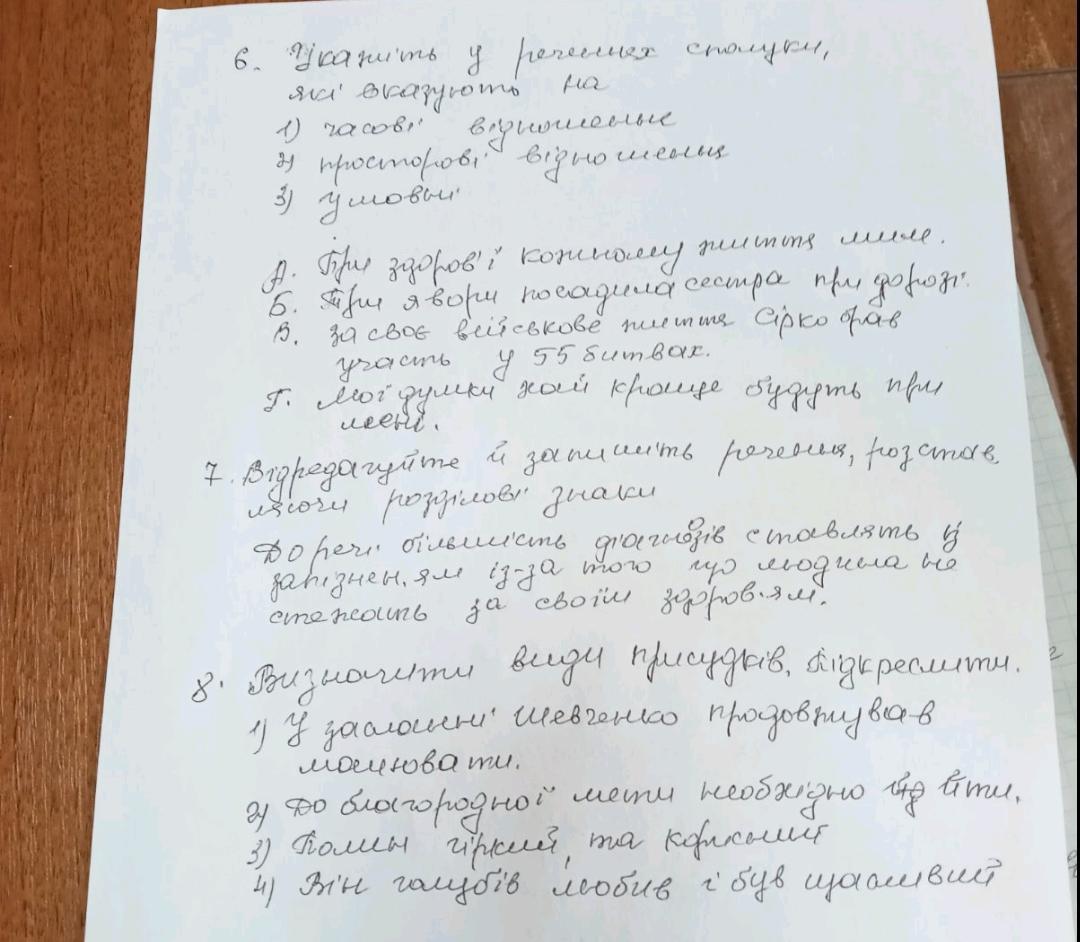 6. Укажіть у реченнях сполуки,
які вказують на
1) часові відношення
2) просторові відношення
3) умовні
А. При здоров'ї кожному життя миле.
Б. Три явори посадила сестра при дорозі.
В. За своє військове життя Сірко брав
участь у 55 битвах.
Г. Мої думки хай краще будуть при
мені.
7. Відредагуйте й запишіть речення, розстав
ляючи розділові знаки
До речі більшість діагнозів ставлять із
запізнен.ям із-за того що людина не
стежить за своїм здоров.ям.
8. Визначити види присудків, підкреслити.
1) У засланні Шевченко продовжував
малювати.
2) До благородної мети необхідно йти.
3) Полин гіркий, та корисний
4) Він голубів любив і був щасливий